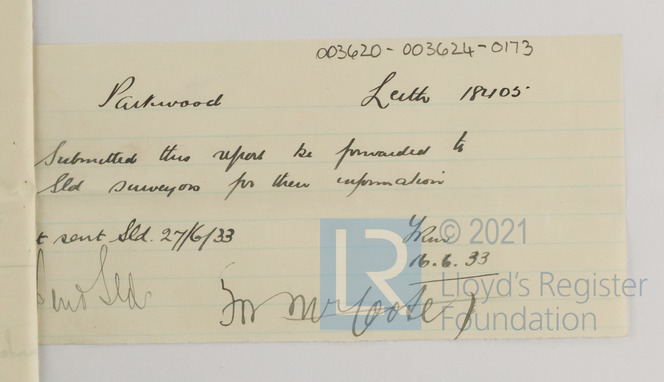 003620-003624-0173
Parkwood Leith 18405
Submitted this report be forwarded to
Sld surveyors for their information
t sent Sld. 27/6/33
16.6.33
Sld
for Mr
LR
© 2021
Lloyd's Register
Foundation